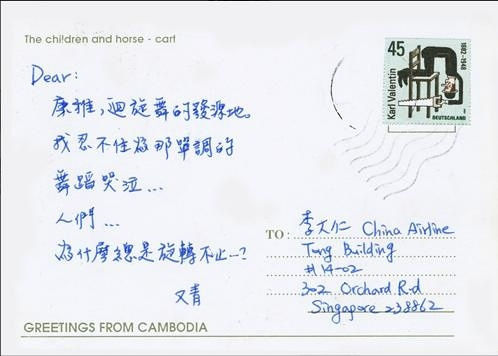 The children and horse - cart
Dear:
康雅,迴旋舞的發源地。
我忍不住為那單調的
舞蹈哭泣...
人們...
為什麼總是旋轉不止...?
又青
45
Karl Valentin
1882-1948
DEUTSCHLAND
TO:
李大仁 China Airline
Tong Building
#14-02
302 Orchard Rd
Singapore 238862
GREETINGS FROM CAMBODIA